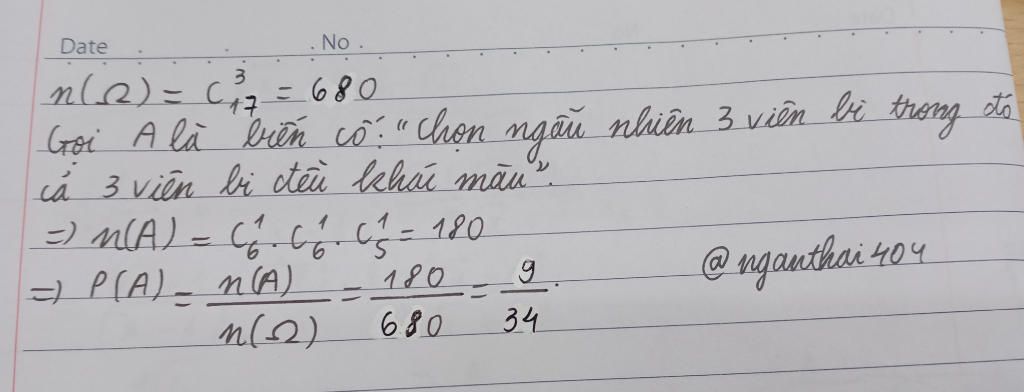 Date . . . No .
n(Ω) = C³₁₇ = 680
Gọi A là biến cố: "Chọn ngẫu nhiên 3 viên bi trong đó
cả 3 viên bi đều khác màu".
=) n(A) = C¹₆ . C¹₆ . C¹₅ = 180
=) P(A) = n(A)/n(Ω) = 180/680 = 9/34.
@nganthai404